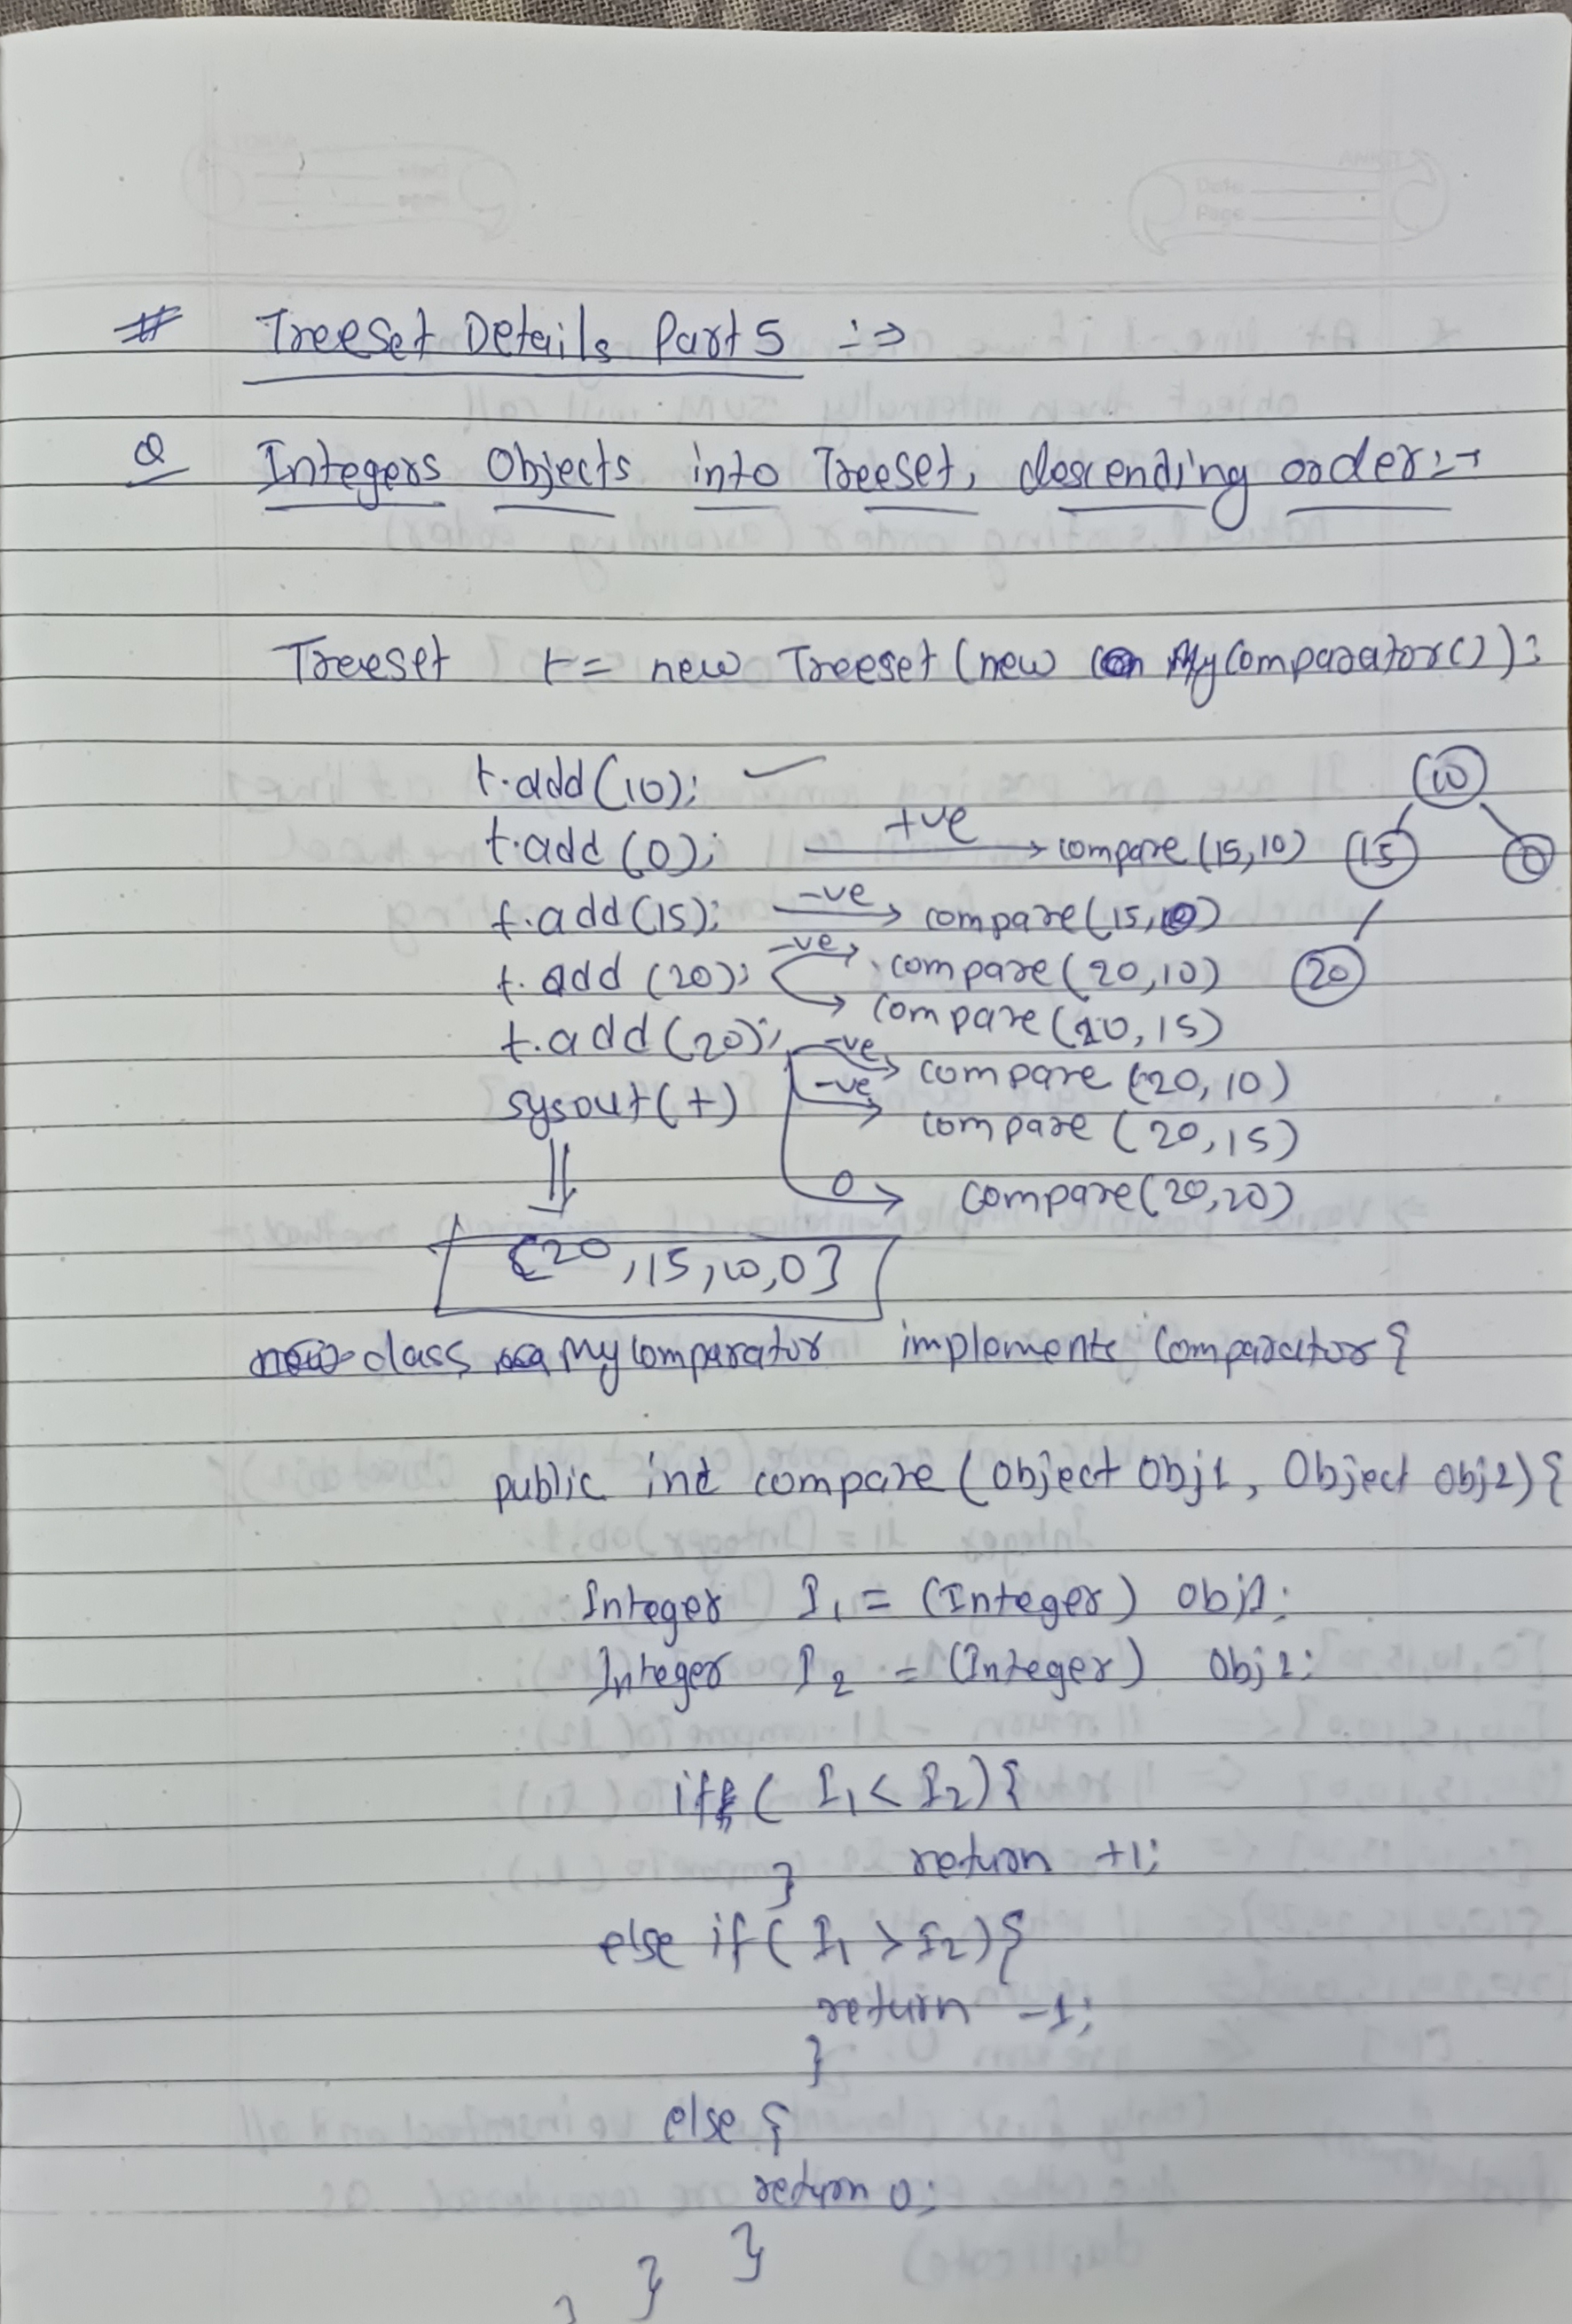 # TreeSet Details Part 5 :⇒
Q Integers Objects into TreeSet, descending order:→
Treeset t = new Treeset (new MyComparator());
t.add(10); ✓
t.add(0); +ve → compare (15,10)
t.add(15); -ve → compare(15,10)
t.add (20); -ve → compare(20,10)
→ compare(20,15)
t.add(20); -ve → compare (20,10)
sysout(t) -ve → compare (20,15)
0 → compare(20,20)
10
15 0
20
{20,15,10,0}
class MyComparator implements Comparator{
public int compare (Object Obj1, Object obj2){
Integer I1 = (Integer) obj1;
Integer I2 = (Integer) obj2;
if ( I1 < I2){
return +1;
}
else if( I1 > I2){
return -1;
}
else {
return 0;
}
}
}